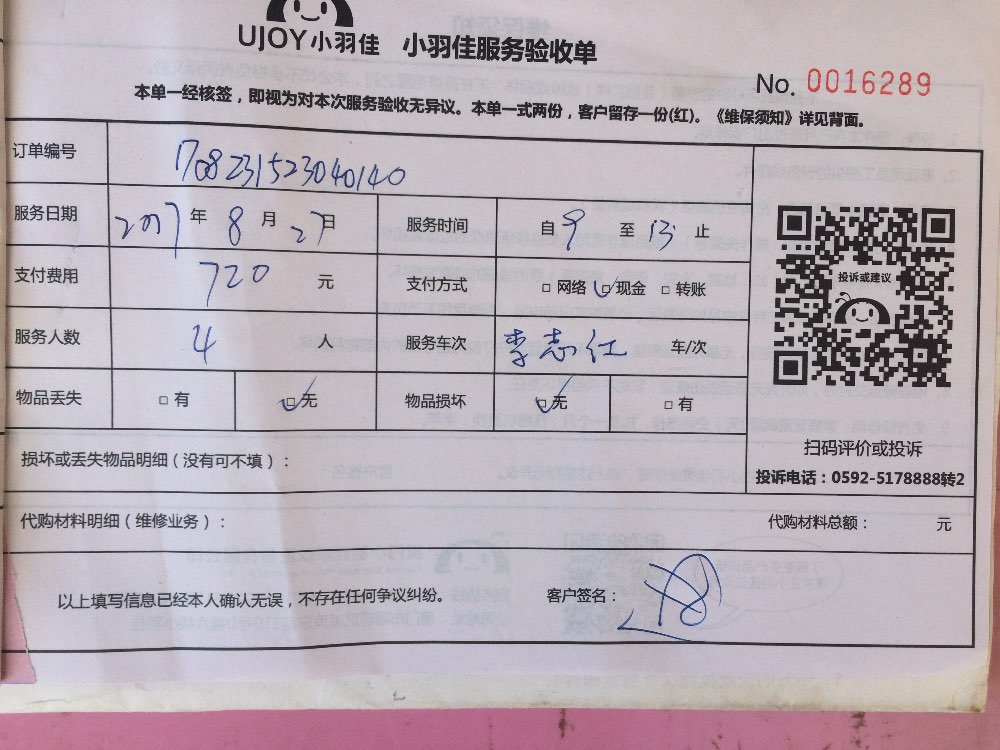 UJOY小羽佳 小羽佳服务验收单
No. 0016289
本单一经核签，即视为对本次服务验收无异议。本单一式两份，客户留存一份(红)。《维保须知》详见背面。
订单编号 170823152304040140
服务日期 2017 年 8 月 27 日 服务时间 自 9 至 13 止
支付费用 720 元 支付方式 □ 网络 □ 现金 □ 转账
投诉或建议
服务人数 4 人 服务车次 李志红 车/次
物品丢失 □ 有 □ 无 物品损坏 □ 无 □ 有
扫码评价或投诉
损坏或丢失物品明细（没有可不填）：
投诉电话：0592-5178888转2
代购材料明细（维修业务）： 代购材料总额： 元
以上填写信息已经本人确认无误，不存在任何争议纠纷。 客户签名：